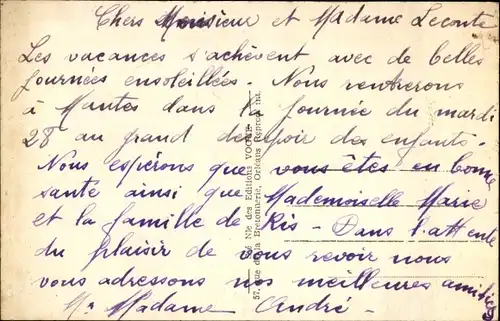 Chers Monsieur et Madame Leconte
Les vacances s'achèvent avec de belles
journées ensoleillées. Nous rentrerons
à Mantes dans la journée du mardi
28 au grand desespoir des enfants.
Nous espérons que vous êtes en bonne
santé ainsi que Mademoiselle Marie
et la famille de Ris. Dans l'attente
du plaisir de vous revoir nous
vous adressons nos meilleures amitiés
Mr Madame André.
Sté Nlle des Editions VOGUE
57, rue de la Bretonnerie, Orléans Reprod. int.